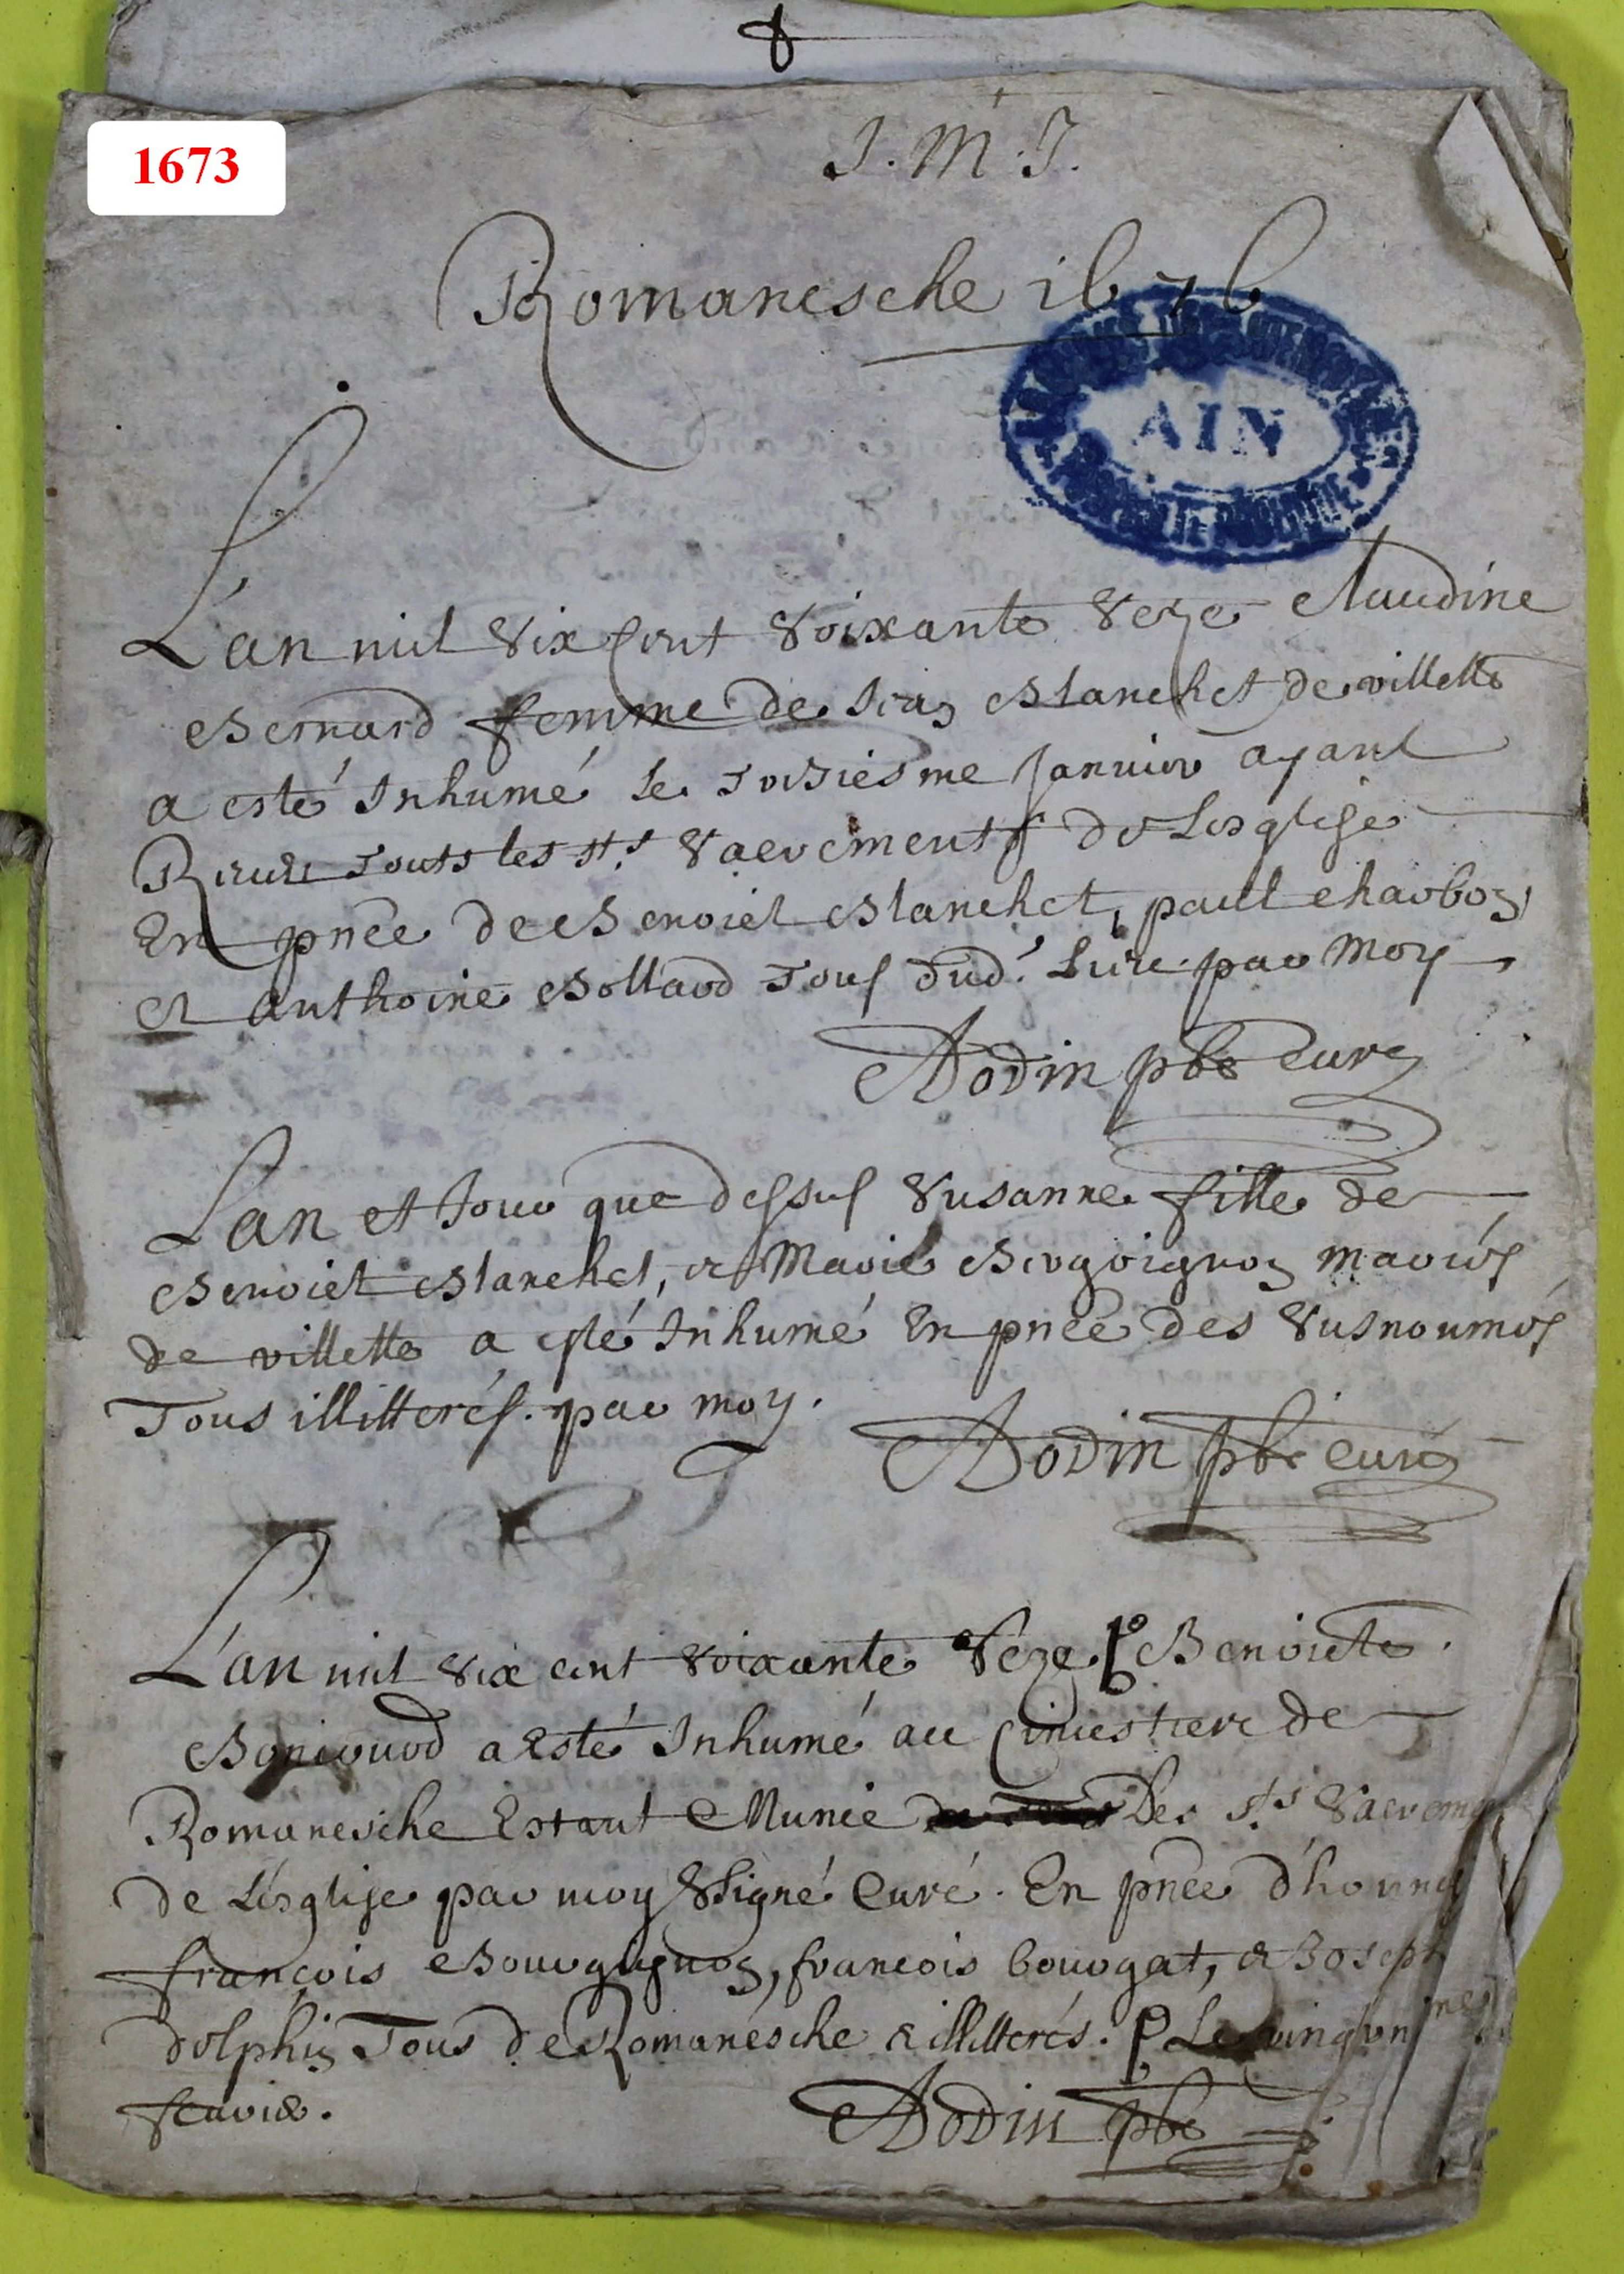 1673
J. M. J.
Romanesche 1676
AIN
L'an mil six cent soixante seze Claudine
Bernard femme de Jean Blanchet de villette
a esté Inhumé le Janvier ayant
Receu touts les sts sacrements de Lesglise
En pnce de Benoict Blanchet, paul charbon
et anthoine Bollard tous dud. lieu par Moy
Dodin pbr Curé
Lan et Jour que dessus Susanne fille de
Benoict Blanchet, et Marie mariés
de villette a esté Inhumé En pnce des susnoumés
Tous illitterés. par moy.
Dodin pbr curé
L'an mil six cent soixante seze Benoicte
a Esté Inhumé au Cimestiere de
Romanesche Estant Munie Des sts
de Lésglise par moy Ssigné Curé. En pnce d'honne
françois Bourguignon, francois bourgat, et Joseph
dolphin Tous de Romanésche & illitterés. Le
febvier.
Dodin pbr